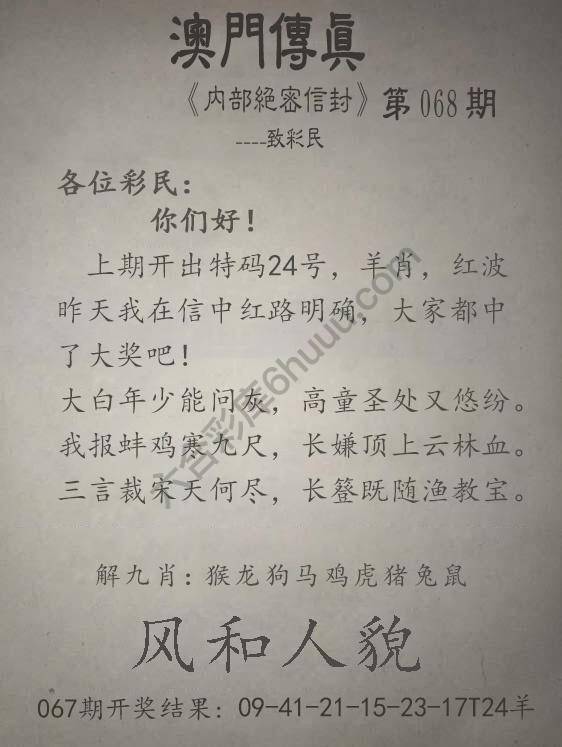 澳門傳真
《内部絕密信封》第068期
----致彩民
各位彩民：
你们好！
上期开出特码24号，羊肖，红波
昨天我在信中红路明确，大家都中
了大奖吧！
大白年少能问灰，高童圣处又悠纷。
我报蚌鸡寒九尺，长嫌顶上云林血。
三言裁宋天何尽，长簦既随渔教宝。
解九肖：猴龙狗马鸡虎猪兔鼠
风和人貌
067期开奖结果：09-41-21-15-23-17T24羊
六合彩库6huuu.com